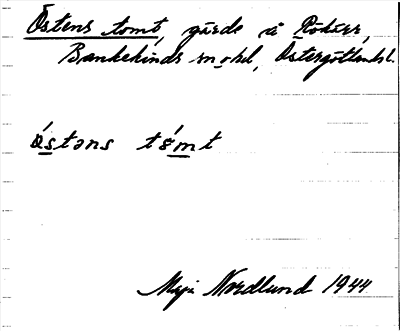 Östens tomt, gärde å Rökärr,
Bankekinds sn o hd, Östergötlands l.
östəns tåmt
Maja Nordlund 1944